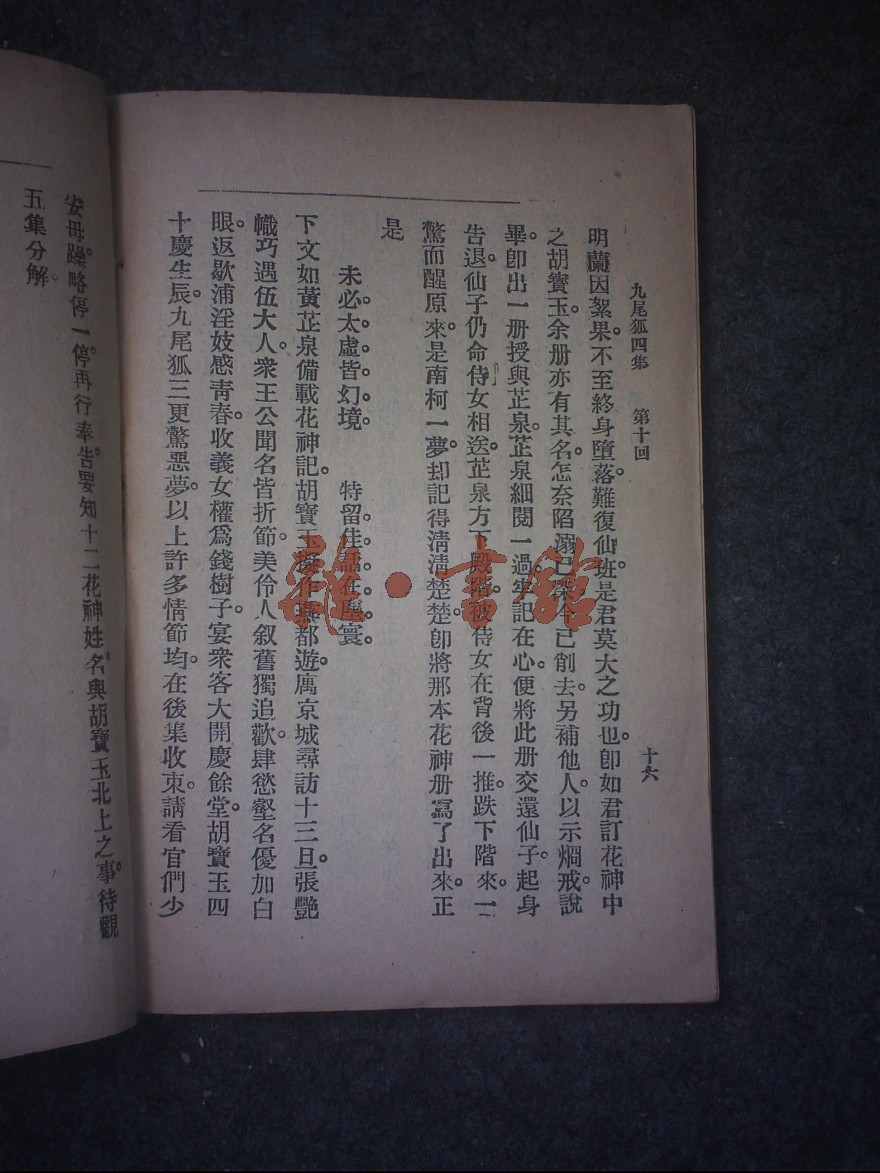 九尾狐四集　第十回　十六
明蘭因絮果。不至終身墮落。難復仙班。是君莫大之功也。卽如君訂花神中
之胡寶玉。余册亦有其名。怎奈陷溺已深。今已削去。另補他人。以示烱戒。說
畢。卽出一册授與芷泉。芷泉細閱一過。牢記在心。便將此册交還仙子。起身
告退。仙子仍命侍女相送。芷泉方下殿階。被侍女在背後一推。跌下階來。一
驚而醒。原來是南柯一夢。却記得淸淸楚楚。卽將那本花神册寫了出來。正
是
未必太虛皆幻境。　特留佳話在塵寰。
下文如黃芷泉備載花神記。胡寶玉擬作燕都遊。厲京城尋訪十三旦。張艷
幟巧遇伍大人。衆王公聞名皆折節。美伶人叙舊獨追歡。肆慾壑名優加白
眼。返歇浦淫妓感靑春。收義女權爲錢樹子。宴衆客大開慶餘堂。胡寶玉四
十慶生辰。九尾狐三更驚惡夢。以上許多情節。均在後集收束。請看官們少
安毋躁。略停一停。再行奉告。要知十二花神姓名。與胡寶玉北上之事。待觀
五集分解。
雒·書館